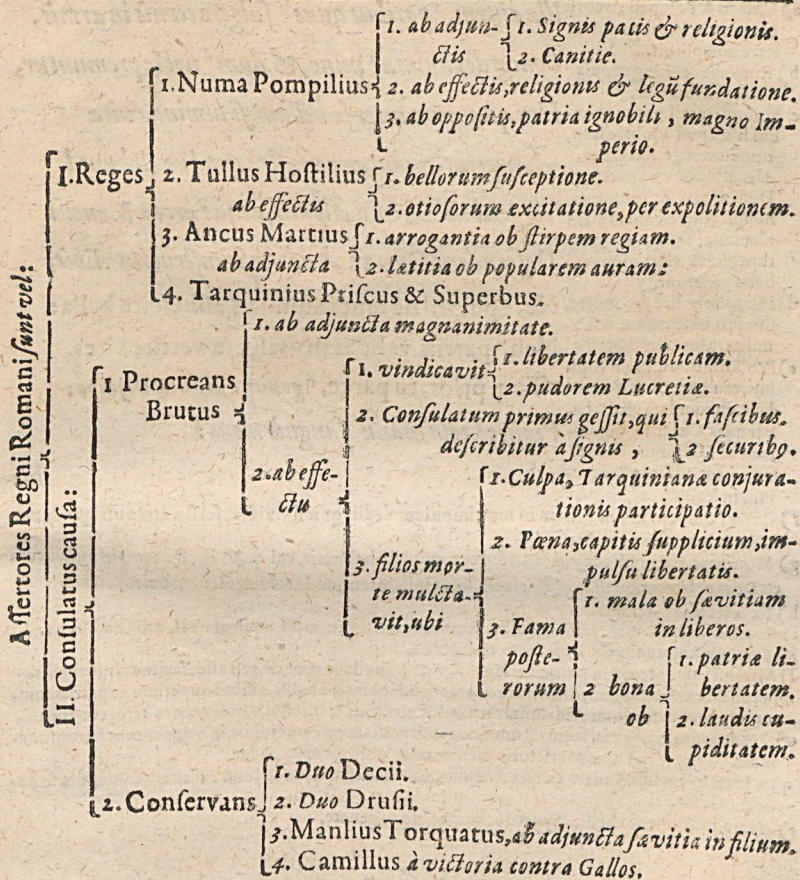 Aſſertores Regni Romani ſunt vel:
I. Reges
1. Numa Pompilius
1. ab adjun-
ctis
1. Signis pacis & religionis.
2. Canitie.
2. ab effectis, religionis & legū fundatione.
3. ab oppoſitis, patria ignobili, magno Im-
perio.
2. Tullus Hoſtilius
ab effectis
1. bellorum ſuſceptione.
2. otioſorum excitatione, per expolitionem.
3. Ancus Martius
ab adjuncta
1. arrogantia ob ſtirpem regiam.
2. lætitia ob popularem auram:
4. Tarquinius Priſcus & Superbus.
II. Conſulatus cauſa:
1 Procreans
Brutus
1. ab adjuncta magnanimitate.
2. ab effe-
ctu
1. vindicavit
1. libertatem publicam.
2. pudorem Lucretiæ.
2. Conſulatum primus geſſit, qui
deſcribitur à ſignis,
1. faſcibus.
2 ſecuribꝰ.
3. filios mor-
te mulcta-
vit, ubi
1. Culpa, Tarquinianæ conjura-
tionis participatio.
2. Pœna, capitis ſupplicium, im-
pulſu libertatis.
3. Fama
poſte-
rorum
1. mala ob ſævitiam
in liberos.
2 bona
ob
1. patriæ li-
bertatem.
2. laudis cu-
piditatem.
2. Conſervans
1. Duo Decii.
2. Duo Druſii.
3. Manlius Torquatus, ab adjuncta ſævitia in filium.
4. Camillus à victoria contra Gallos.